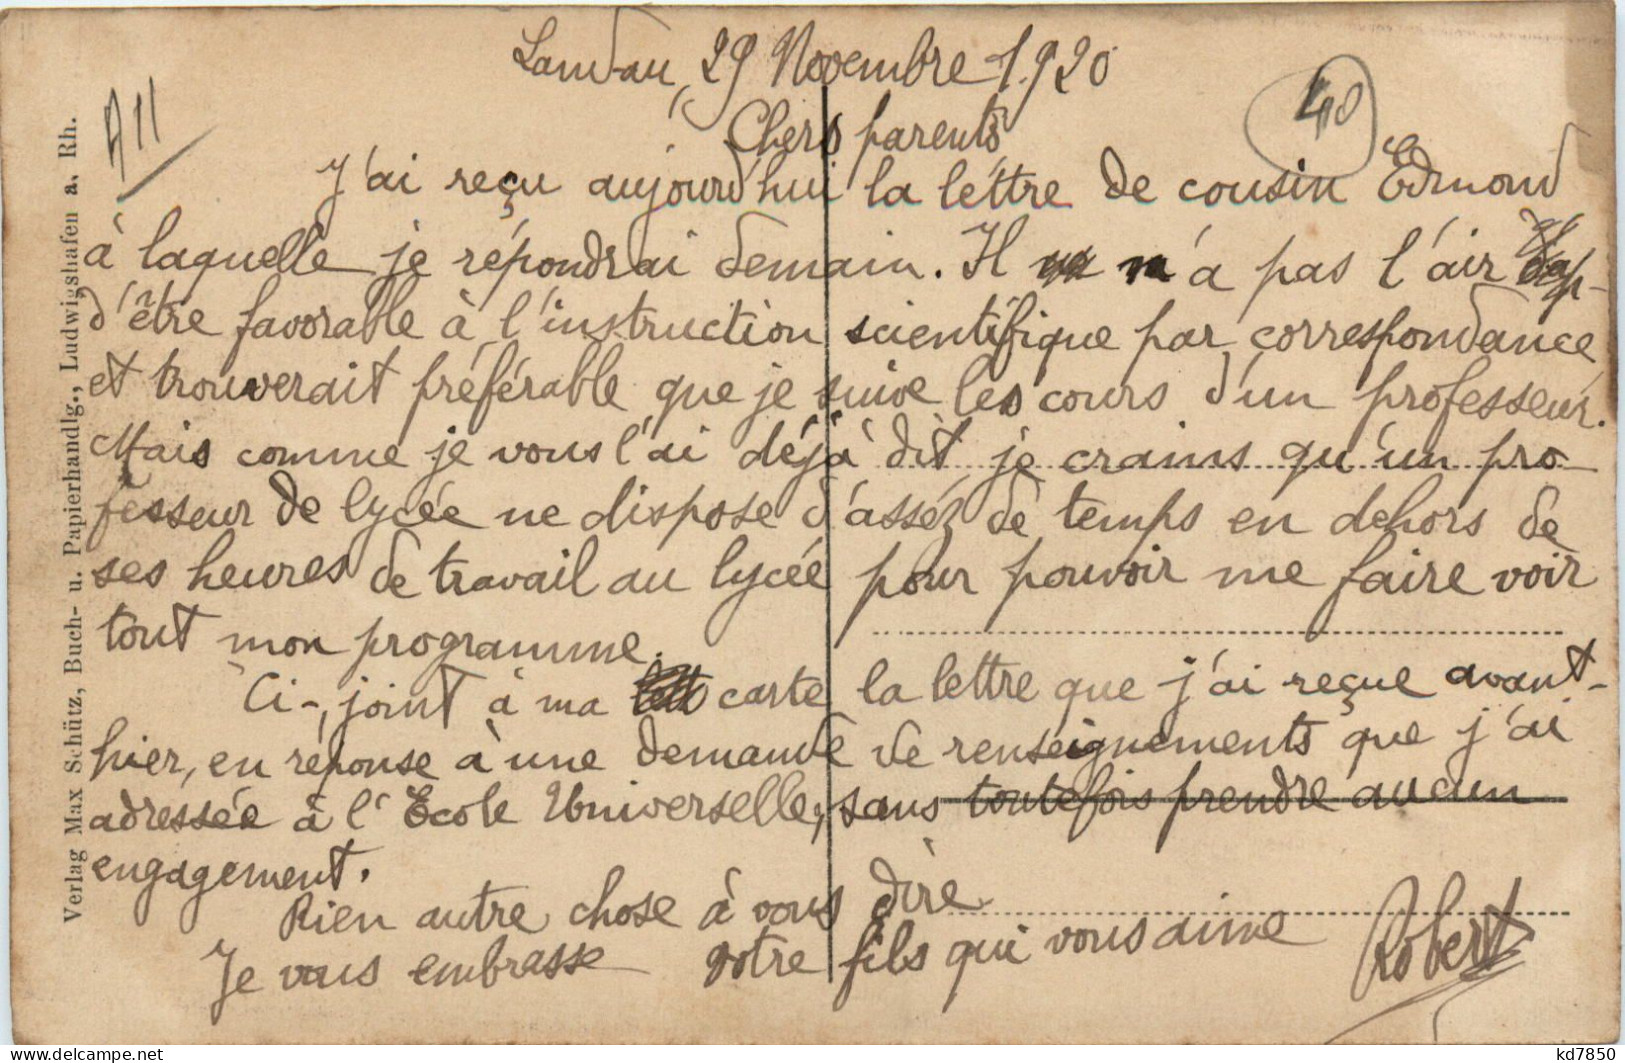 Landau, 29 Novembre 1920
Chers parents
J'ai reçu aujourd'hui la léttre de cousin Edmond
à laquelle je répondrai demain. Il n'a pas l'air
d'être favorable à l'instruction scientifique par correspondance
et trouverait préférable que je suive les cours d'un professeur.
Mais comme je vous l'ai déjà dit je crains qu'un pro-
fesseur de lycée ne dispose d'asséz de temps en dehors de
ses heures de travail au lycée pour pouvoir me faire voir
tout mon programme.
Ci-joint à ma carte la lettre que j'ai reçue avant-
hier, en réponse à une demande de renseignements que j'ai
adressée à l'Ecole Universelle, sans toutefois prendre aucun
engagement.
Rien autre chose à vous dire
Je vous embrasse votre fils qui vous aime Robert
A11
40
Verlag Max Schütz, Buch- u. Papierhandlg., Ludwigshafen a. Rh.
www.delcampe.net
kd7850